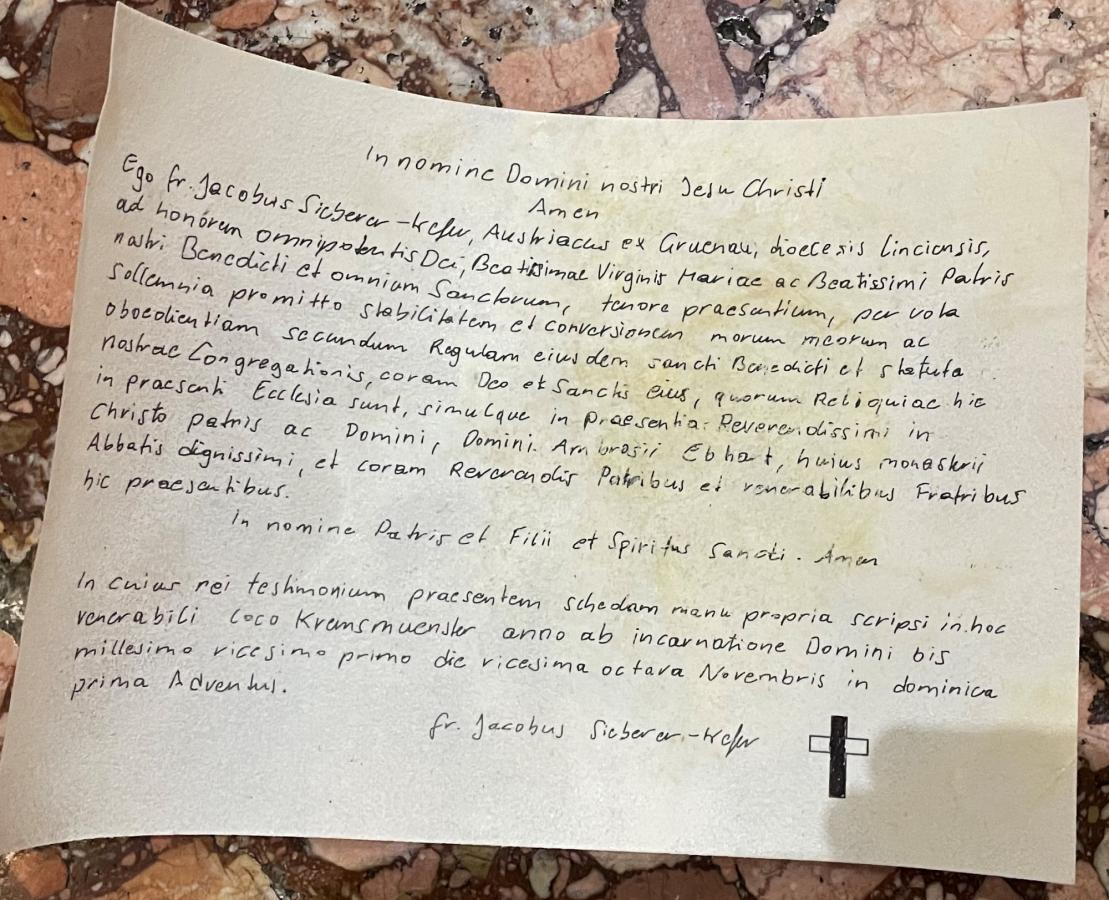 In nomine Domini nostri Jesu Christi
Amen
Ego fr. Jacobus Sieberer-Kefer, Austriacus ex Gruenau, dioecesis Linciensis,
ad honorem omnipotentis Dei, Beatissimae Virginis Mariae ac Beatissimi Patris
nostri Benedicti et omnium Sanctorum, tenore praesentium, per vota
sollemnia promitto stabilitatem et conversionem morum meorum ac
oboedientiam secundum Regulam eiusdem sancti Benedicti et statuta
nostrae Congregationis, coram Deo et Sanctis eius, quorum Reliquiae hic
in praesenti Ecclesia sunt, simulque in praesentia Reverendissimi in
Christo patris ac Domini, Domini Ambrosii Ebhart, huius monasterii
Abbatis dignissimi, et coram Reverendis Patribus et venerabilibus Fratribus
hic praesentibus.
In nomine Patris et Filii et Spiritus Sancti. Amen
In cuius rei testimonium praesentem schedam manu propria scripsi in hoc
venerabili loco Kremsmuenster anno ab incarnatione Domini bis
millesimo vicesimo primo die vicesima octava Novembris in dominica
prima Adventus.
fr. Jacobus Sieberer-Kefer